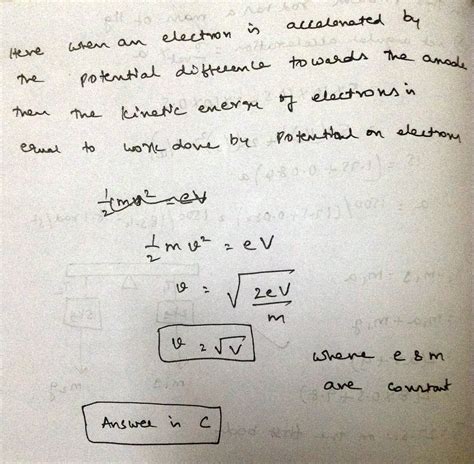 Here when an electron is accelerated by
the potential difference towards the anode
then the kinetic energy of electrons is
equal to work done by potential on electrons
½mv² = eV
½ m v² = eV
v = √(2eV/m)
v = √V
where e & m
are constant
Answer is C